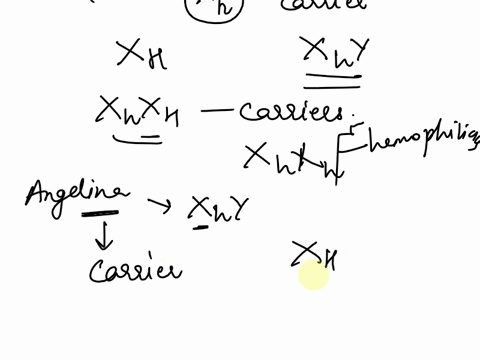 Xh carrier
XH XhY
XhXH — carriers.
XhXh hemophilia
Angelina → XhY
↓
Carrier XH